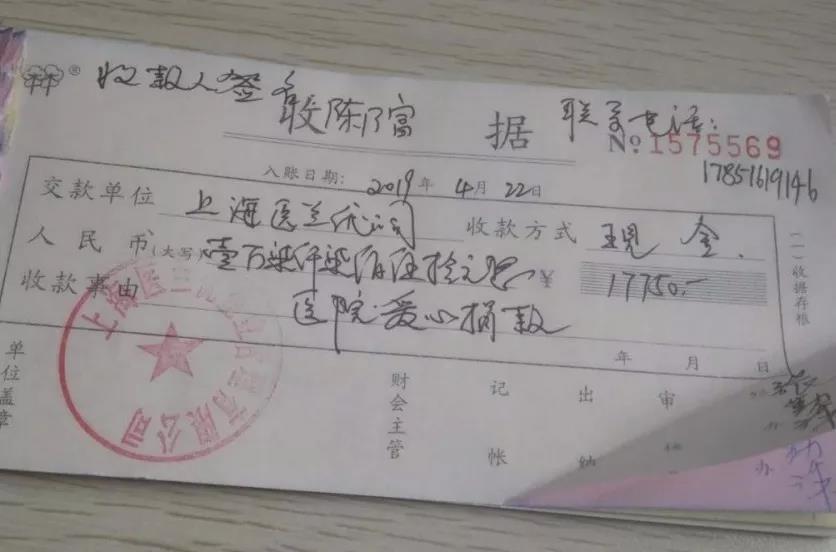 收款人签名 陈富 联系电话:
收 据 № 1575569
17851619146
入账日期: 2019年 4月 22日
交款单位 上海医兰优公司 收款方式 现金.
人民币(大写) 壹万柒仟柒佰伍拾元 ¥ 17750.-
收款事由 医院爱心捐款
年 月 日
(一)收据存根
单位盖章 财会主管 记帐 出纳 审
办
上海医 有限公司